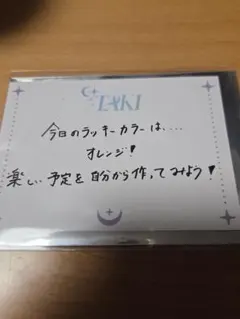 TAKI
今日のラッキーカラーは....
オレンジ!
楽しい予定を自分から作ってみよう!